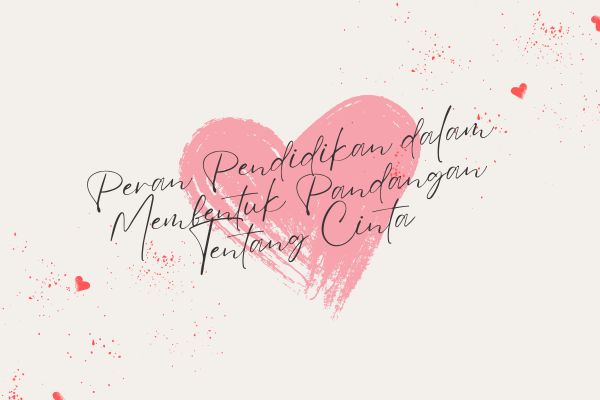 Peran Pendidikan dalam
Membentuk Pandangan
Tentang Cinta